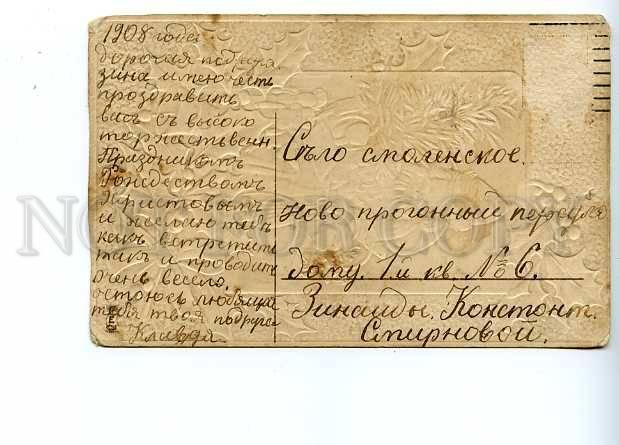 1908 года
дорогая подруга
зина имею честь
проздравить
васъ съ высоко
торжественн.
Праздникомъ
Рождествомъ
Христовымъ
и желаю тебъ
какъ встретить
такъ и проводить
очень весело,
остоюсь любящая
тебя твоя подруга
Клавда
Съло смоленское.
Ново прогонный переул
дому. 1 й кв. № 6.
Зинаиды. Констонт.
Смирновой.